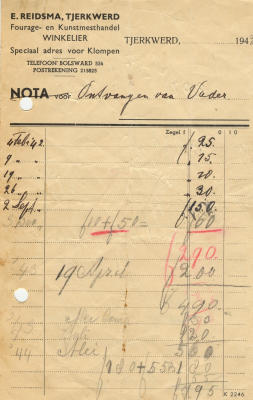 E. REIDSMA, TJERKWERD
Fourage- en Kunstmesthandel
WINKELIER
Speciaal adres voor Klompen
TELEFOON BOLSWARD 326
POSTREKENING 215825
TJERKWERD, 194
NOTA voor Ontvangen van Vader
Zegel f 0 10
4 Feb. 42. f 25.
9 " " 15
19 " " 20.
26 " " 30.
2 Sept. " 150.
f 10 + f 50 = f 60
f 290
43 19 April f 200
f 490
44 Mei 500
f 995
K 2246